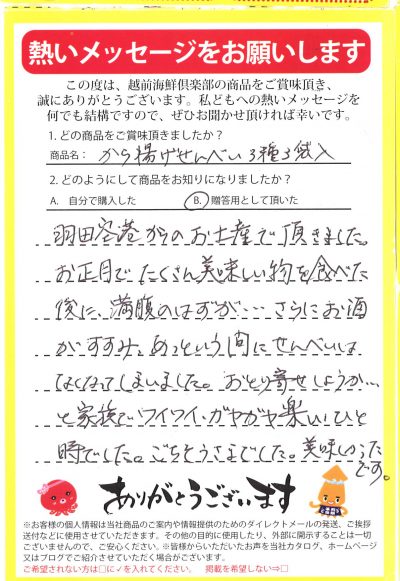 熱いメッセージをお願いします
この度は、越前海鮮倶楽部の商品をご賞味頂き、
誠にありがとうございます。私どもへの熱いメッセージを
何でも結構ですので、ぜひお聞かせ頂ければ幸いです。
1. どの商品をご賞味頂きましたか？
商品名： から揚げせんべい 3種3袋入
2. どのようにして商品をお知りになりましたか？
A. 自分で購入した B. 贈答用として頂いた
羽田空港からのお土産で頂きました。
お正月でたくさん美味しい物を食べた
後に、満腹のはずが… さらにお酒
がすすみ、あっという間にせんべいは
なくなってしまいました。おとり寄せしようか…
と家族でワイワイ・ガヤガヤ楽しいひと
時でした。ごちそうさまでした。美味しかったです。
ありがとうございます
※お客様の個人情報は当社商品のご案内や情報提供のためのダイレクトメールの発送、ご挨拶
送付などに使用させていただきます。その他の目的に使用したり、外部に開示することは一切
ございませんので、ご安心ください。※皆様からいただいたお声を当社カタログ、ホームページ
又はブログでご紹介させていただく場合がございます。
ご希望されない方は□に✓を入れてください。 掲載を希望しない⇒□